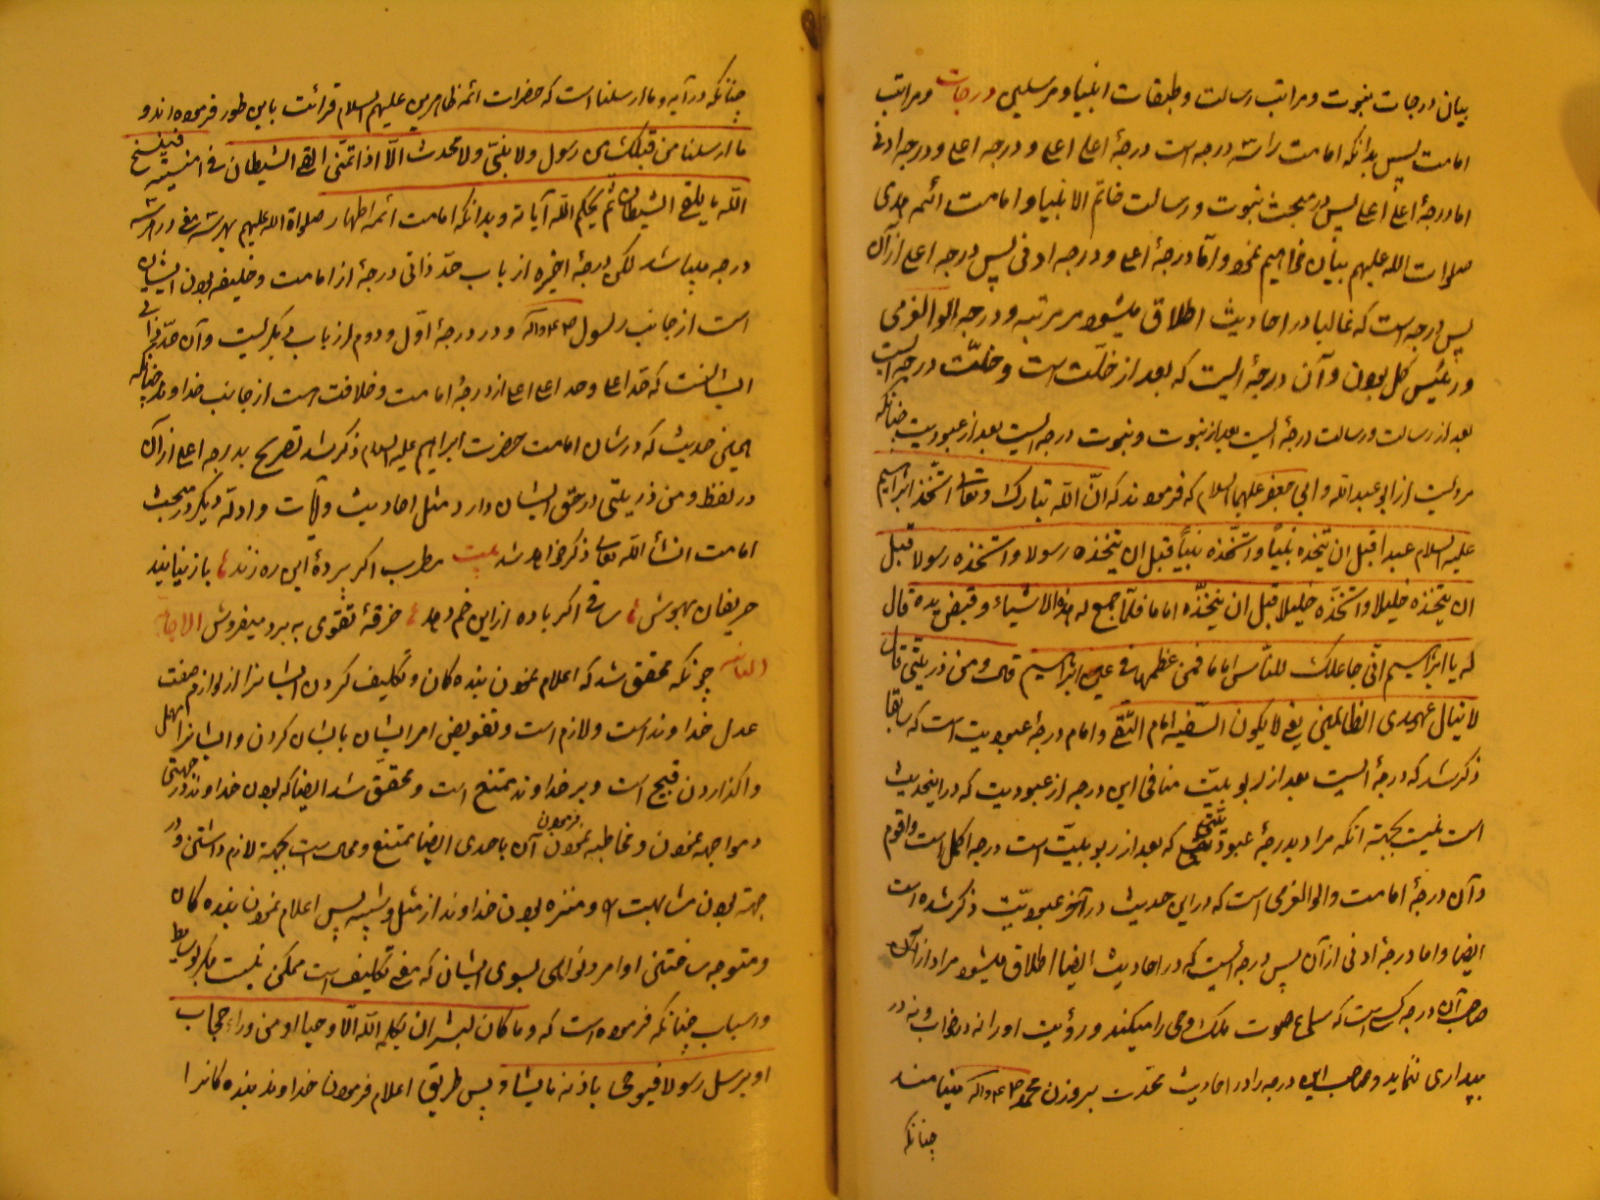 بیان درجات نبوت و مراتب رسالت و طبقات انبیا و مرسلین درجات و مراتب
امامت پس بدانکه امامت را سه درجه است درجهٔ اعلی اعلی و درجه اعلی و درجه ادنی
اما درجهٔ اعلی اعلی پس در مبحث نبوت و رسالت خاتم الانبیا و امامت ائمه هدی
صلوات الله علیهم بیان خواهیم نمود و اما درجهٔ اعلی و درجه ادنی پس درجه اعلی از آن
پس درجه است که غالبا در احادیث اطلاق میشود بر مرتبه و درجه الوالعزمی
و رئیس کل بودن و آن درجهٔ ایست که بعد از خلّت است و خلّت درجه ایست
بعد از رسالت و رسالت درجهٔ ایست بعد از نبوت و نبوت درجه ایست بعد از عبودیت چنانکه
مرویست از ابو عبدالله و ابی جعفر علیهما السلام که فرمودند که انّ الله تبارک و تعالی اتّخذ ابراهیم
علیه السلام عبدا قبل ان یتخذه نبیّاً و اتّخذه نبیّاً قبل ان یتخذه رسولا و اتخذه رسولا قبل
ان یتخذه خلیلا و اتخذه خلیلا قبل ان یتخذه اماما فلمّا جمع له هذه الاشیاء و قبض یده قال
له یا ابراهیم انّی جاعلک للنّاس اماما فمن عظمها فی عین ابراهیم قال و من ذریّتی قال
لا ینال عهدی الظالمین یعنی لا یکون السّفیه امام التّقی و امام درجهٔ عبودیت است که سابقا
ذکر شد که درجهٔ ایست بعد از ربوبیّت منافی این درجه از عبودیت که در این حدیث
است نیست بجهة انکه مراد بدرجهٔ عبودیّتی که بعد از ربوبیّت است درجه اکمل است و اقوم
و آن درجهٔ امامت و الوالعزمی است که در این حدیث در آخر عبودیّت ذکر شده است
ایضا و اما درجهٔ ادنی از آن پس درجهٔ ایست که در احادیث ایضا اطلاق میشود مراد از آن
صاحب آن درجه کسی است که سماع صوت ملک وحی را میکند و رؤیت او را نه در خواب و نه در
بیداری ننماید و صاحب این درجه را در احادیث محدّث بر وزن محمد ص ع و اله مینامند
چنانکه
چنانکه در آیه و ما ارسلنا است که حضرات ائمه طاهرین علیهم السلام قرائت باین طور فرموده اند و
ما ارسلنا من قبلک من رسول و لا نبیّ و لا محدث الّا اذا تمنّی القی الشیطان فی امنیّته فینسخ
الله ما یلقی الشیطان ثم یحکم الله آیاته و بدانکه امامت ائمه اطهار صلواة الله علیهم بهر سه معنی و در هر سه
درجه میباشد لکن درجهٔ اخیره از باب حدّ ذاتی درجهٔ از امامت و خلیفه بودن ایشان
است از جانب رسول ص ع و اله و در درجهٔ اوّل و دوم از باب دیگریست و آن حدّ
ایشانست که حدّ اعلی و حد اعلی اعلی از درجهٔ امامت و خلافت است از جانب خداوند چنانکه
همین حدیث که در شان امامت حضرت ابراهیم علیه السلام ذکر شد تصریح بدرجه اعلی از آن
در لفظ و من ذریتی در حق ایشان دارد مثل احادیث و آیات و ادلّه دیگر در مبحث
امامت انشأ الله تعالی ذکر خواهد شد بیت مطرب اگر پردهٔ این ره زند باز نیایند
حریفان بهوش ساقی اگر باده از این خم دهد خرقهٔ تقوی به برد میفروش
چونکه محقق شد که اعلام نمودن بنده کان و تکلیف کردن ایشانرا از لوازم صفت
عدل خداوند است و لازم است و تفویض امر ایشان بایشان کردن و ایشانرا مهمل
واگذاردن قبیح است و بر خداوند ممتنع است و محقق شد ایضا که بودن خداوند در جهتی
و مواجهه نمودن و مخاطبه نمودن فرمودن آن باحدی ایضا ممتنع و محال است بجهة لازم داشتن در
جهة بودن مشابهت او و منزه بودن خداوند از مثل و شبیه پس اعلام نمودن بنده کان
و متوجه ساختن اوامر و نواهی بسوی ایشان که معنی تکلیف است ممکن نیست مگر بوسایط
و اسباب چنانکه فرموده است که و ما کان لبشر ان یکلمه الله الّا وحیا او من وراء حجاب
او یرسل رسولا فیوحی باذنه ما یشا و پس طریق اعلام فرمودن خداوند بنده کانرا